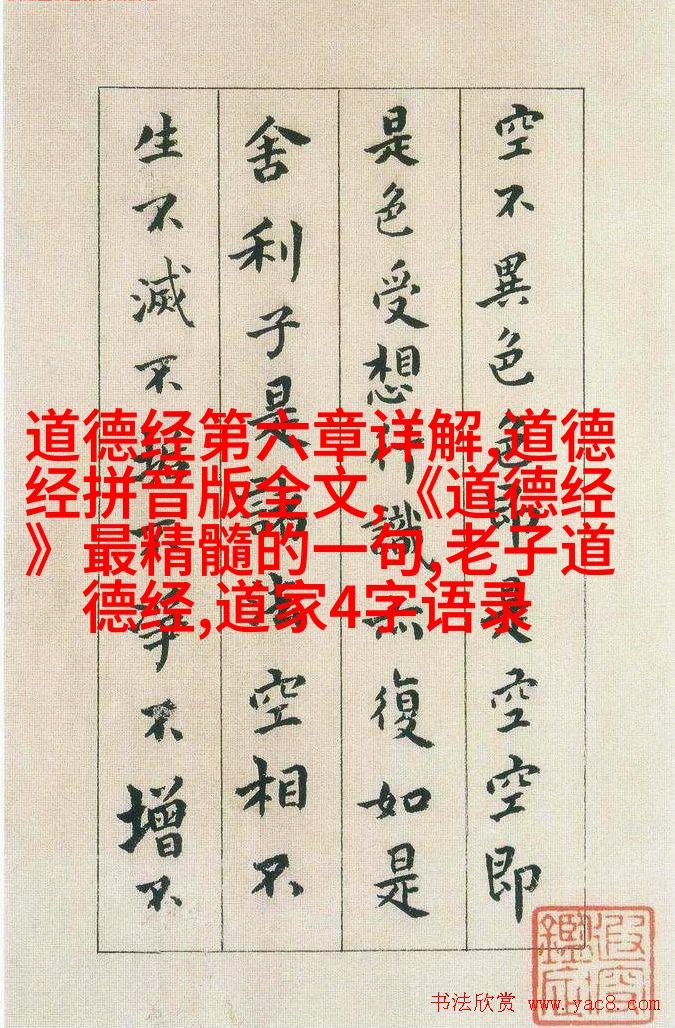 空不異色色即是空空即
是色受想行識亦復如是
舍利子是諸空相不
生不滅不不淨不增不
道德经第六章详解,道德
经拼音版全文,《道德经
》最精髓的一句,老子道
德经,道家4字语录
书法欣赏 www.yac8.com